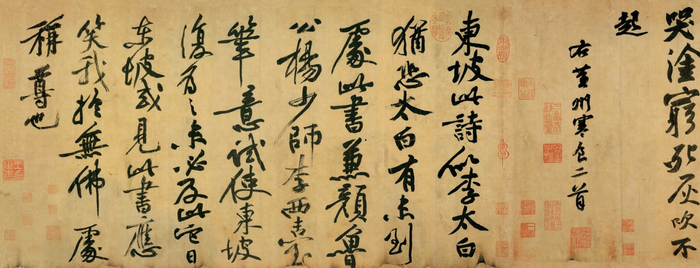 哭塗窮死灰吹不
起
右黃州寒食二首
東坡此詩似李太白
猶恐太白有未到
處此書兼顏魯
公楊少師李西臺
筆意試使東坡
復為之未必及此它日
東坡或見此書應
笑我於無佛處
稱尊也